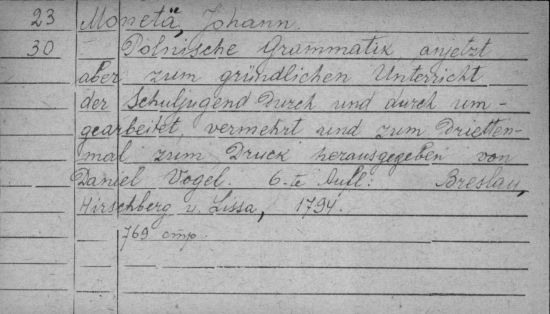 23 Monetä, Johann.
30 Polnische Grammatik anjetzt
aber zum gründlichen Unterricht
der Schuljugend Durch und durch um-
gearbeitet, vermehrt und zum Drietten-
mal zum Druck herausgegeben von
Daniel Vogel. 6-te Aufl: Breslau,
Hirschberg u. Lissa, 1794.
769 стр.